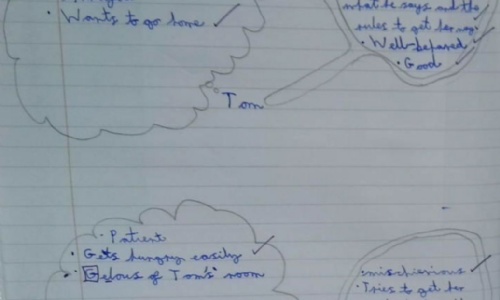 • Wants to go home
what he says and the
rules to get her way
• Well-behaved
• Good
Tom
• Patient
• Gets hungry easily
• Gelous of Tom's room
mischievious
• Tries to get her